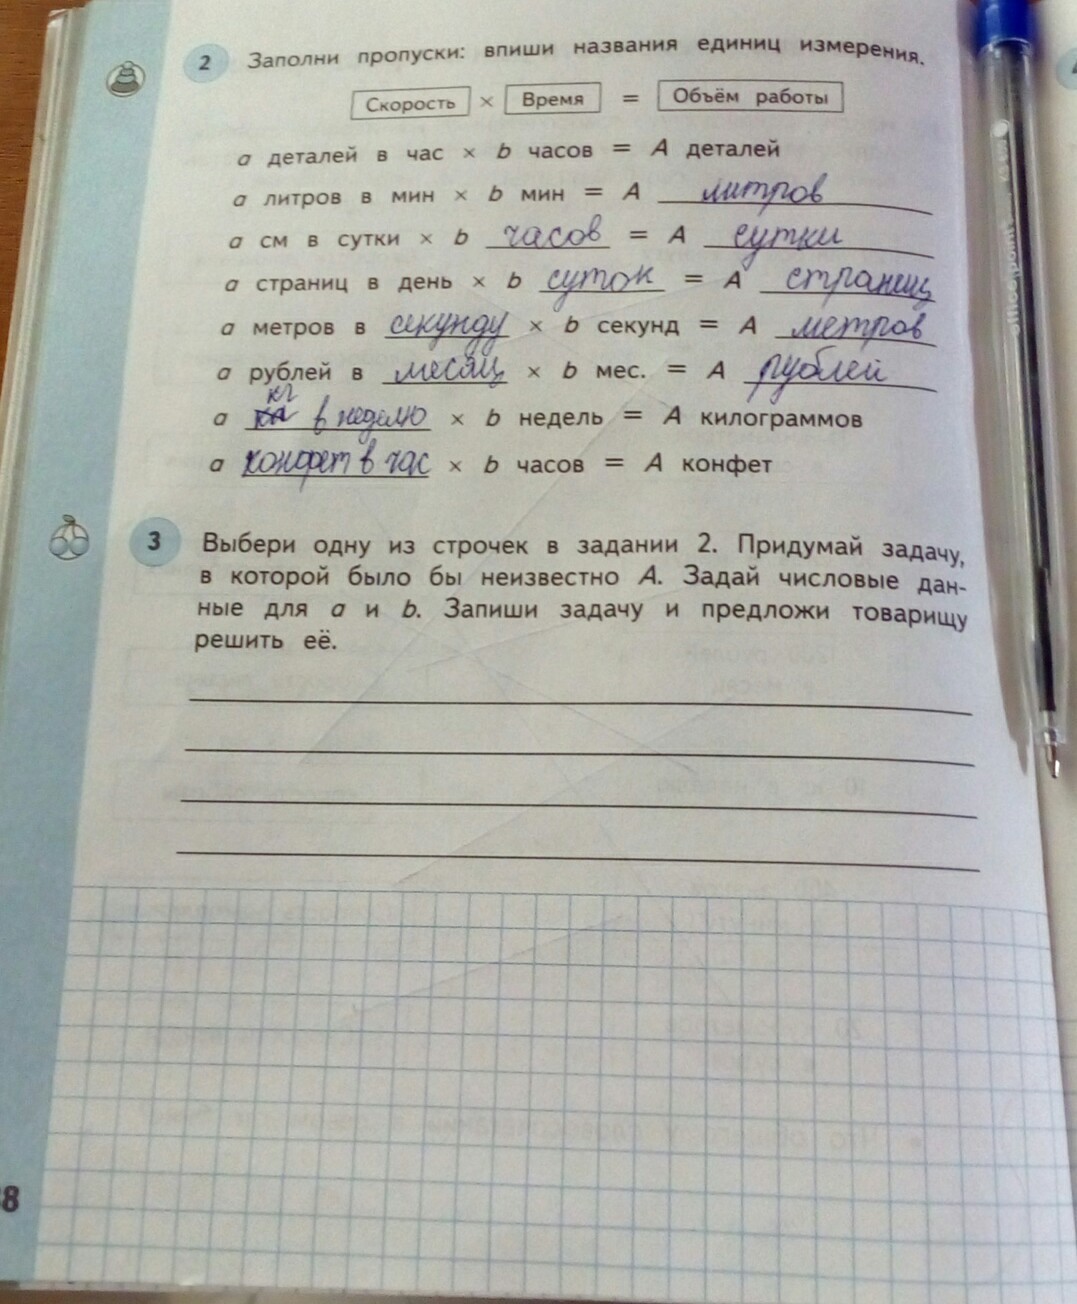 2 Заполни пропуски: впиши названия единиц измерения.
Скорость × Время = Объём работы
a деталей в час × b часов = A деталей
a литров в мин × b мин = A литров
a см в сутки × b часов = A сутки
a страниц в день × b суток = A страниц
a метров в секунду × b секунд = A метров
a рублей в месяц × b мес. = A рублей
кг
a в неделю × b недель = A килограммов
a конфет в час × b часов = A конфет
3 Выбери одну из строчек в задании 2. Придумай задачу,
в которой было бы неизвестно A. Задай числовые дан-
ные для a и b. Запиши задачу и предложи товарищу
решить её.
8
officepoint